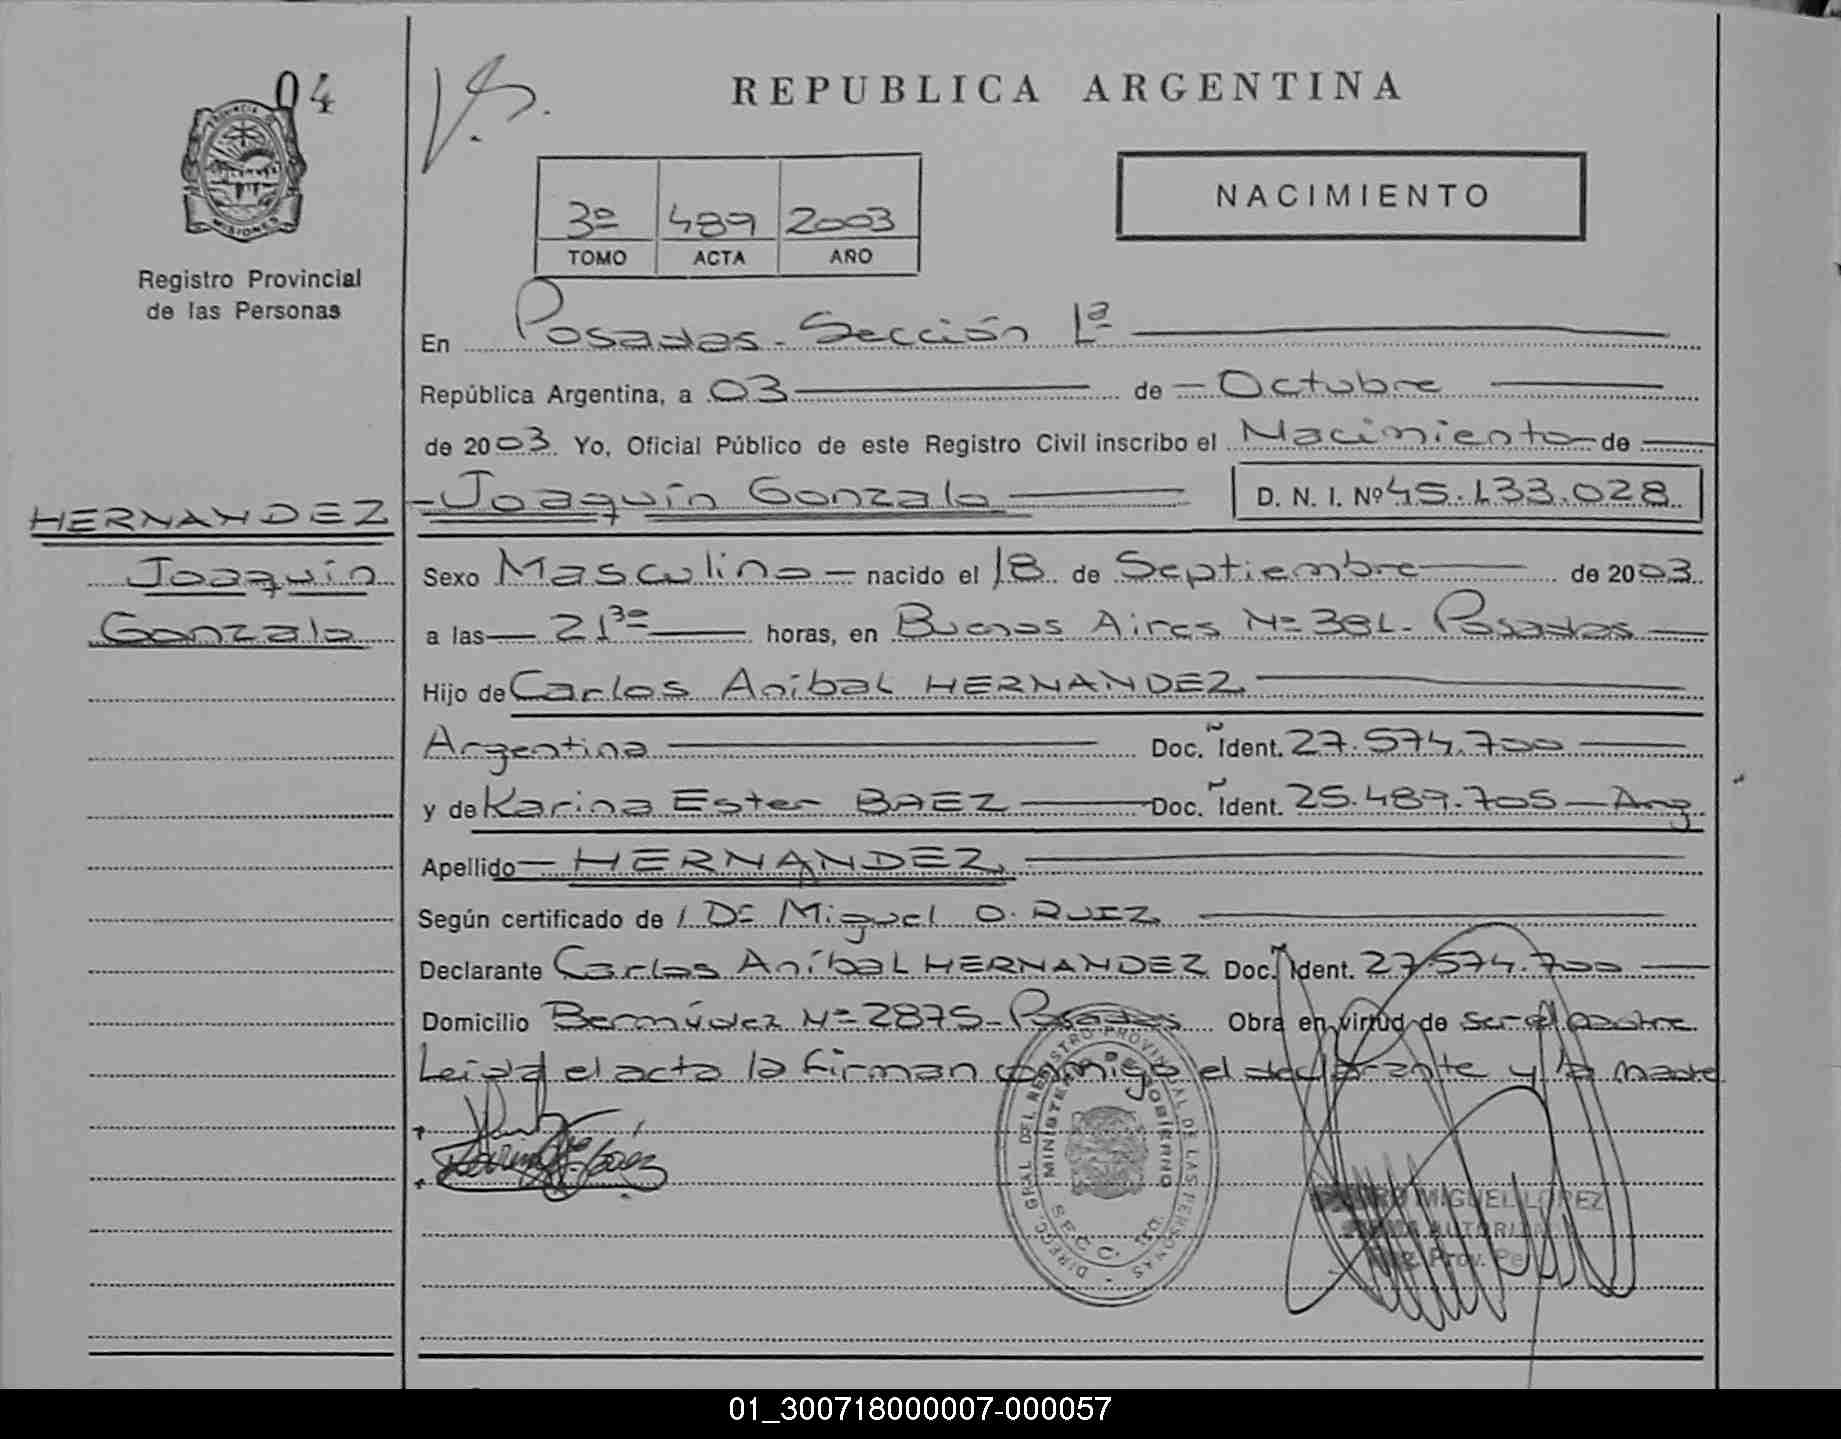 04
V.S.
REPUBLICA ARGENTINA
PROVINCIA DE
MISIONES
Registro Provincial
de las Personas
3º 489 2003
TOMO ACTA AÑO
NACIMIENTO
En Posadas - Sección 1ª
República Argentina, a 03 de Octubre
de 2003 Yo, Oficial Público de este Registro Civil inscribo el Nacimiento de
HERNANDEZ
Joaquín
Gonzalo
Joaquín Gonzalo D. N. I. Nº 45.133.028
Sexo Masculino nacido el 18 de Septiembre de 2003
a las 21³⁰ horas, en Buenos Aires Nº 381 - Posadas
Hijo de Carlos Aníbal HERNANDEZ
Argentina Doc. Ident. 27.574.700
y de Karina Ester BAEZ Doc. Ident. 25.489.705 - Arg
Apellido HERNANDEZ
Según certificado de Miguel O. RUIZ
Declarante Carlos Aníbal HERNANDEZ Doc. Ident. 27.574.700
Domicilio Bermúdez Nº 2875 - Posadas Obra en virtud de ser el padre
Leída el acta la firman conmigo el declarante y la madre
DIRECC. GRAL DEL REGISTRO PROVINCIAL DE LAS PERSONAS
MINISTERIO DE GOBIERNO
SECC.
MIGUEL LOPEZ
Reg. Prov.
01_300718000007-000057